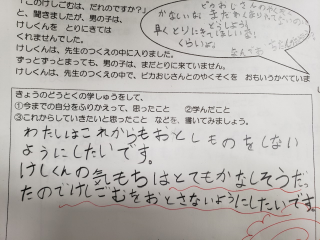 「このけしごむは、だれのですか？」
と、聞きましたが、男の子は、
けしくんを とりにきては
くれませんでした。
けしくんは、先生のつくえの中に入りました。
ずっとずっとまっても、男の子は、まだとりに来ていません。
けしくんは、先生のつくえの中で、ピカおじさんとのやくそくを おもいうかべていま
早くとりにきてほしいな
きょうのどうとくの学しゅうをして、
①今までの自分をふりかえって、思ったこと ②学んだこと
③これからしていきたいと思ったこと などを、書いてみましょう。
わたしはこれからもおとしものをしない
ようにしたいです。
けしくんの気もちはとてもかなしそうだっ
たのでけしごむをおとさないようにしたいです。